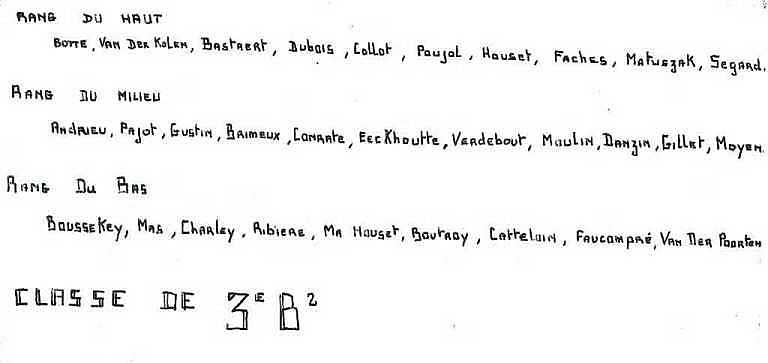 RANG DU HAUT
BOTTE, VAN DER KOLEN, BASTAERT, DUBOIS, COLLOT, POUJOL, HOUSET, FACHES, MATUSZAK, SEGARD.
RANG DU MILIEU
ANDRIEU, PAJOT, GUSTIN, BRIMEUX, CONRATE, EECKHOUTTE, VARDEBOUT, MOULIN, DANZIN, GILLET, MOYEN.
RANG DU BAS
BOUSSEKEY, MAS, CHARLEY, RIBIERE, MR HOUSET, BOUTROY, CATTELOIN, FAUCOMPRÉ, VAN DER POORTEN
CLASSE DE 3E B2